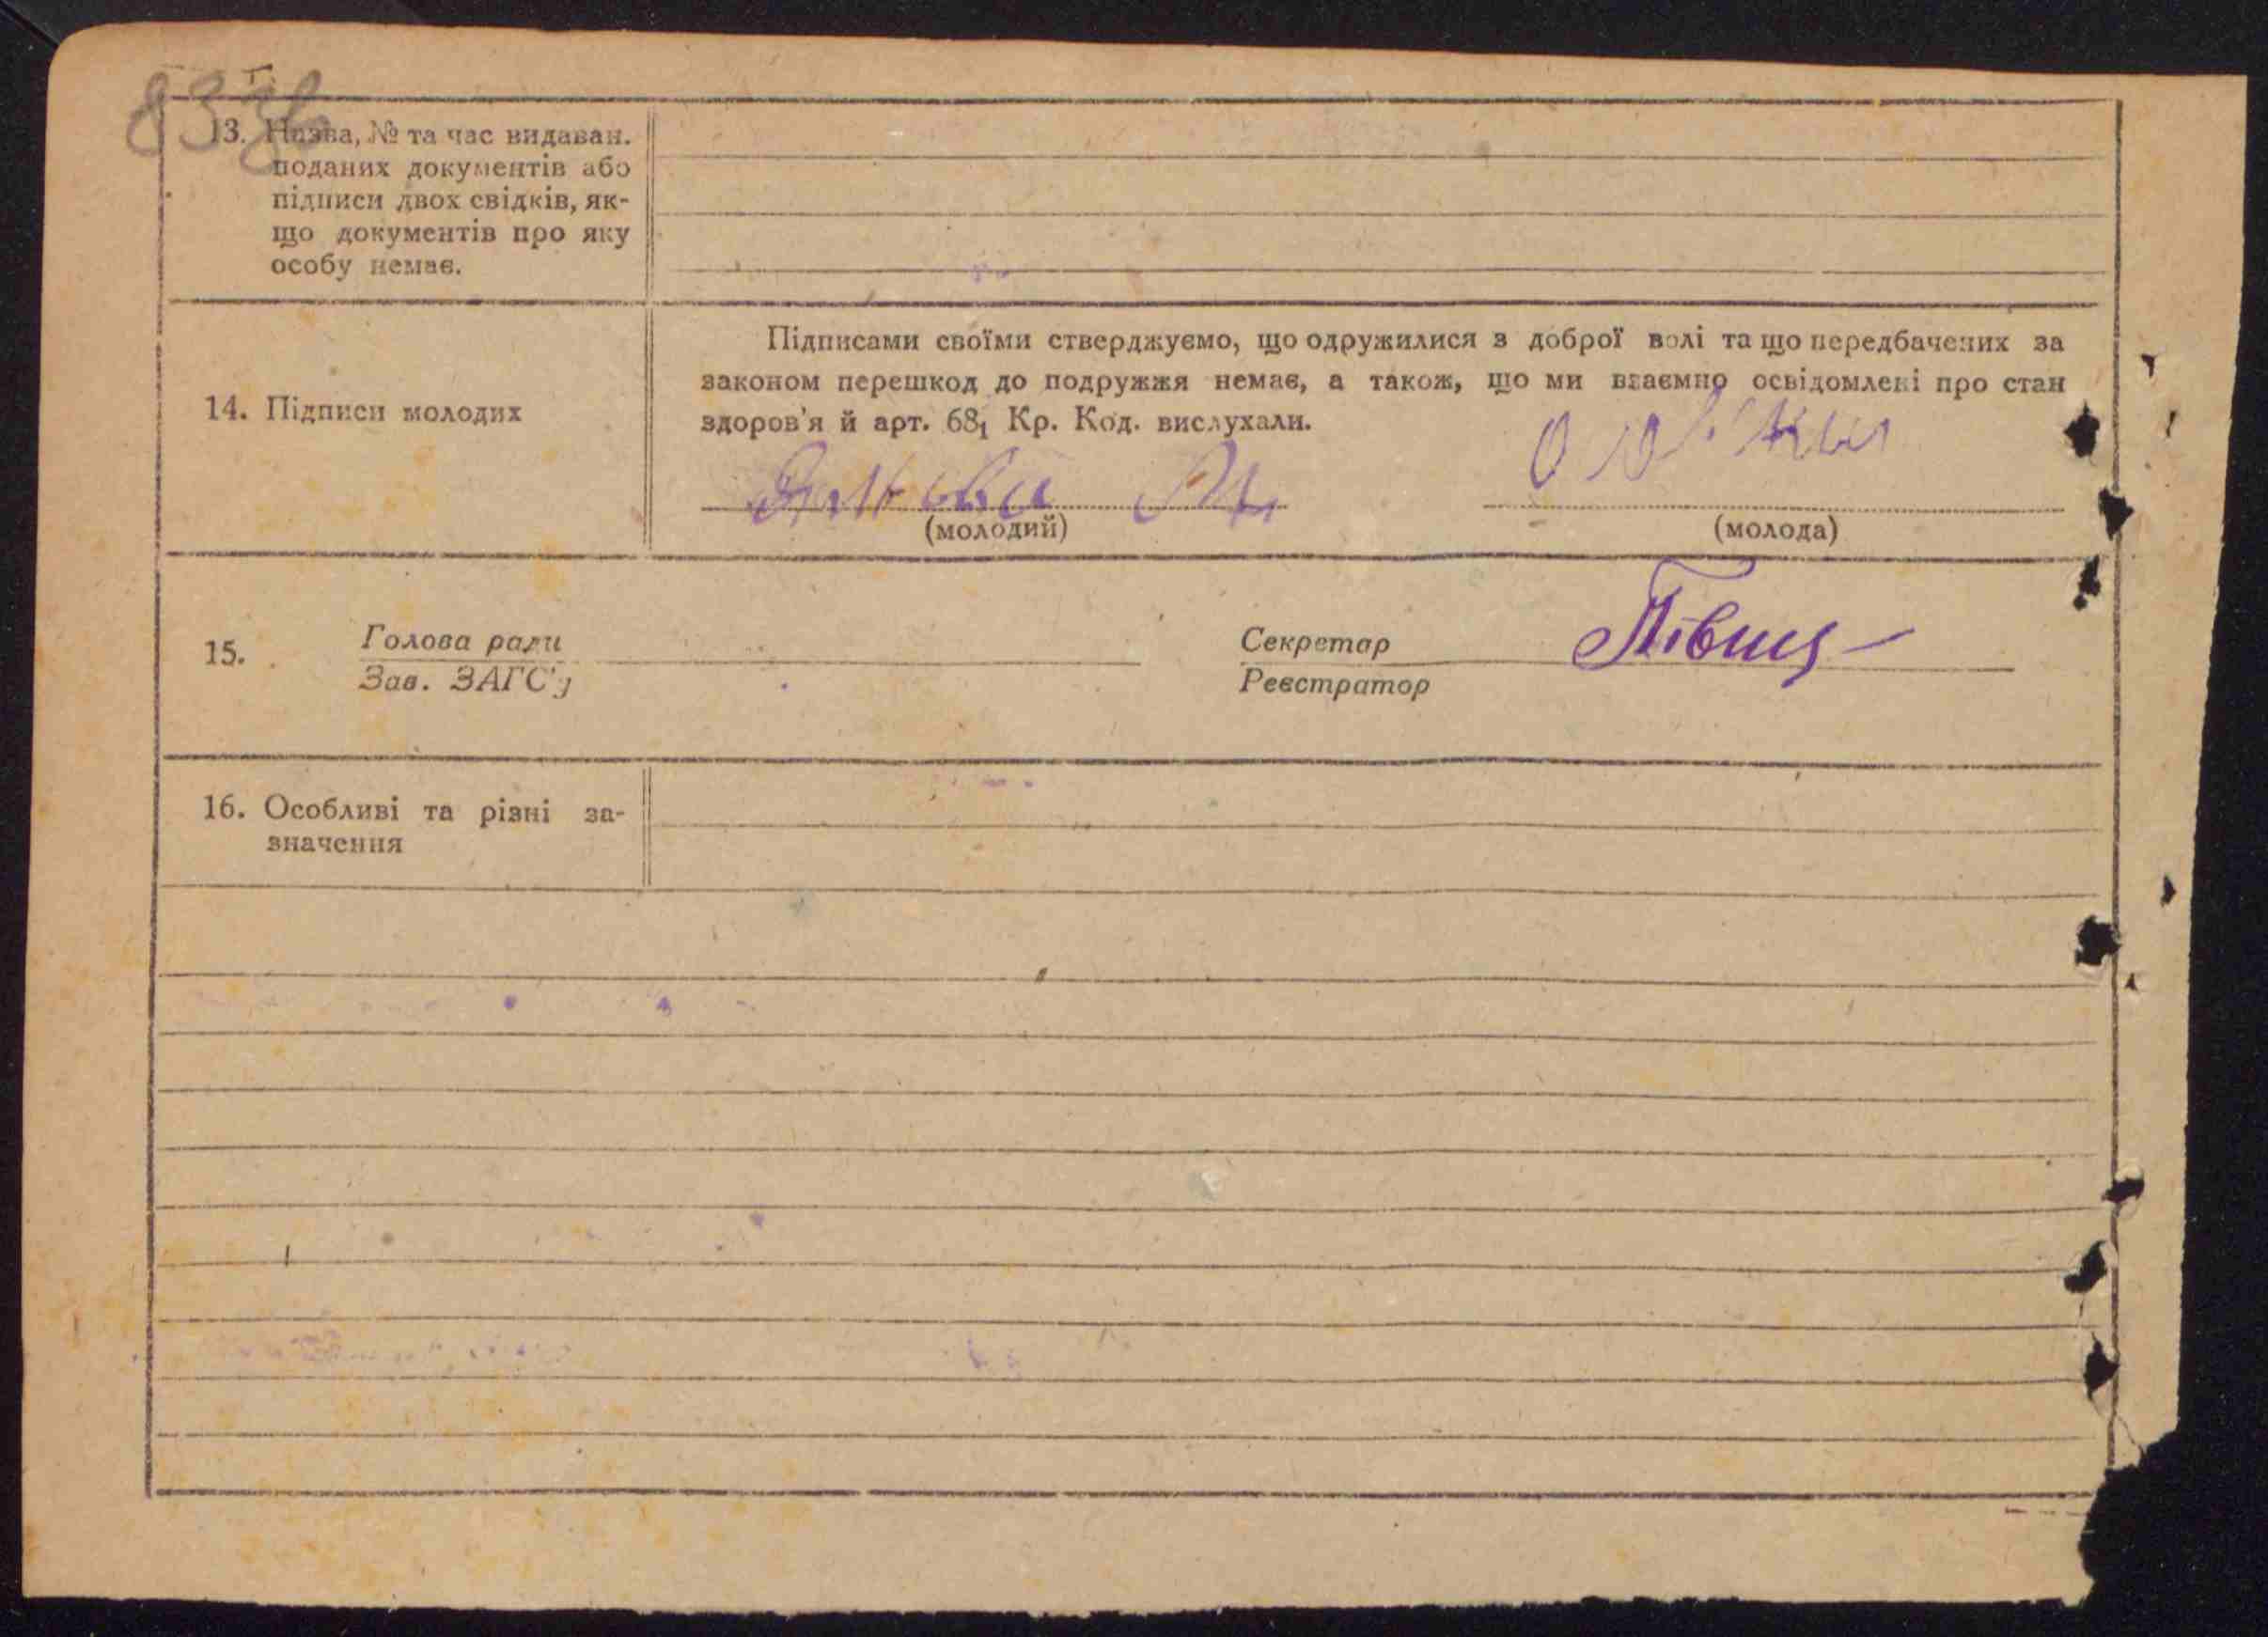 83зв
13. Назва, № та час видаван.
поданих документів або
підписи двох свідків, як-
що документів про яку
особу немає.
14. Підписи молодих
Підписами своїми стверджуємо, що одружилися з доброї волі та що передбачених за
законом перешкод до подружжя немає, а також, що ми взаємно освідомлені про стан
здоров'я й арт. 68₁ Кр. Код. вислухали.
(молодий)
(молода)
15. Голова ради
Зав. ЗАГС'у
Секретар
Реєстратор
16. Особливі та різні за-
значення